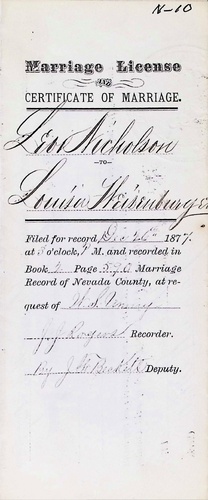 N-10
Marriage License
AND
CERTIFICATE OF MARRIAGE.
Leo Nicholson
—TO—
Louisa
Filed for record, Dec 26th 1877.
at o'clock, P M. and recorded in
Book Page 590 Marriage
Record of Nevada County, at re-
quest of
Rogers Recorder.
By J. Deputy.